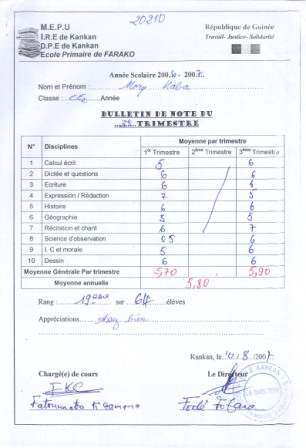 20210
M.E.P.U
I.R.E de Kankan
D.P.E de Kankan
Ecole Primaire de FARAKO
République de Guinée
Travail- Justice- Solidarité
Année Scolaire 200 -200
Nom et Prénom : Mory Kaba
Classe : Année
BULLETIN DE NOTE DU
TRIMESTRE
N° Disciplines Moyenne par trimestre
1er Trimestre 2ème Trimestre 3ème Trimestre
1 Calcul écrit 5 6
2 Dictée et questions 6 6
3 Ecriture 6 5
4 Expression / Rédaction 7 5
5 Histoire 6 6
6 Géographie 5 5
7 Récitation et chant 6 7
8 Science d'observation 05 6
9 I. C et morale 5 6
10 Dessin 6 6
Moyenne Générale Par trimestre 5,70 5,90
Moyenne annuelle 5,80
Rang : 19ème sur 64 élèves
Appréciations Assez bien
Kankan, le 10/8/200
Chargé(e) de cours Le Directeur
Fatoumata
Fodé Fofana